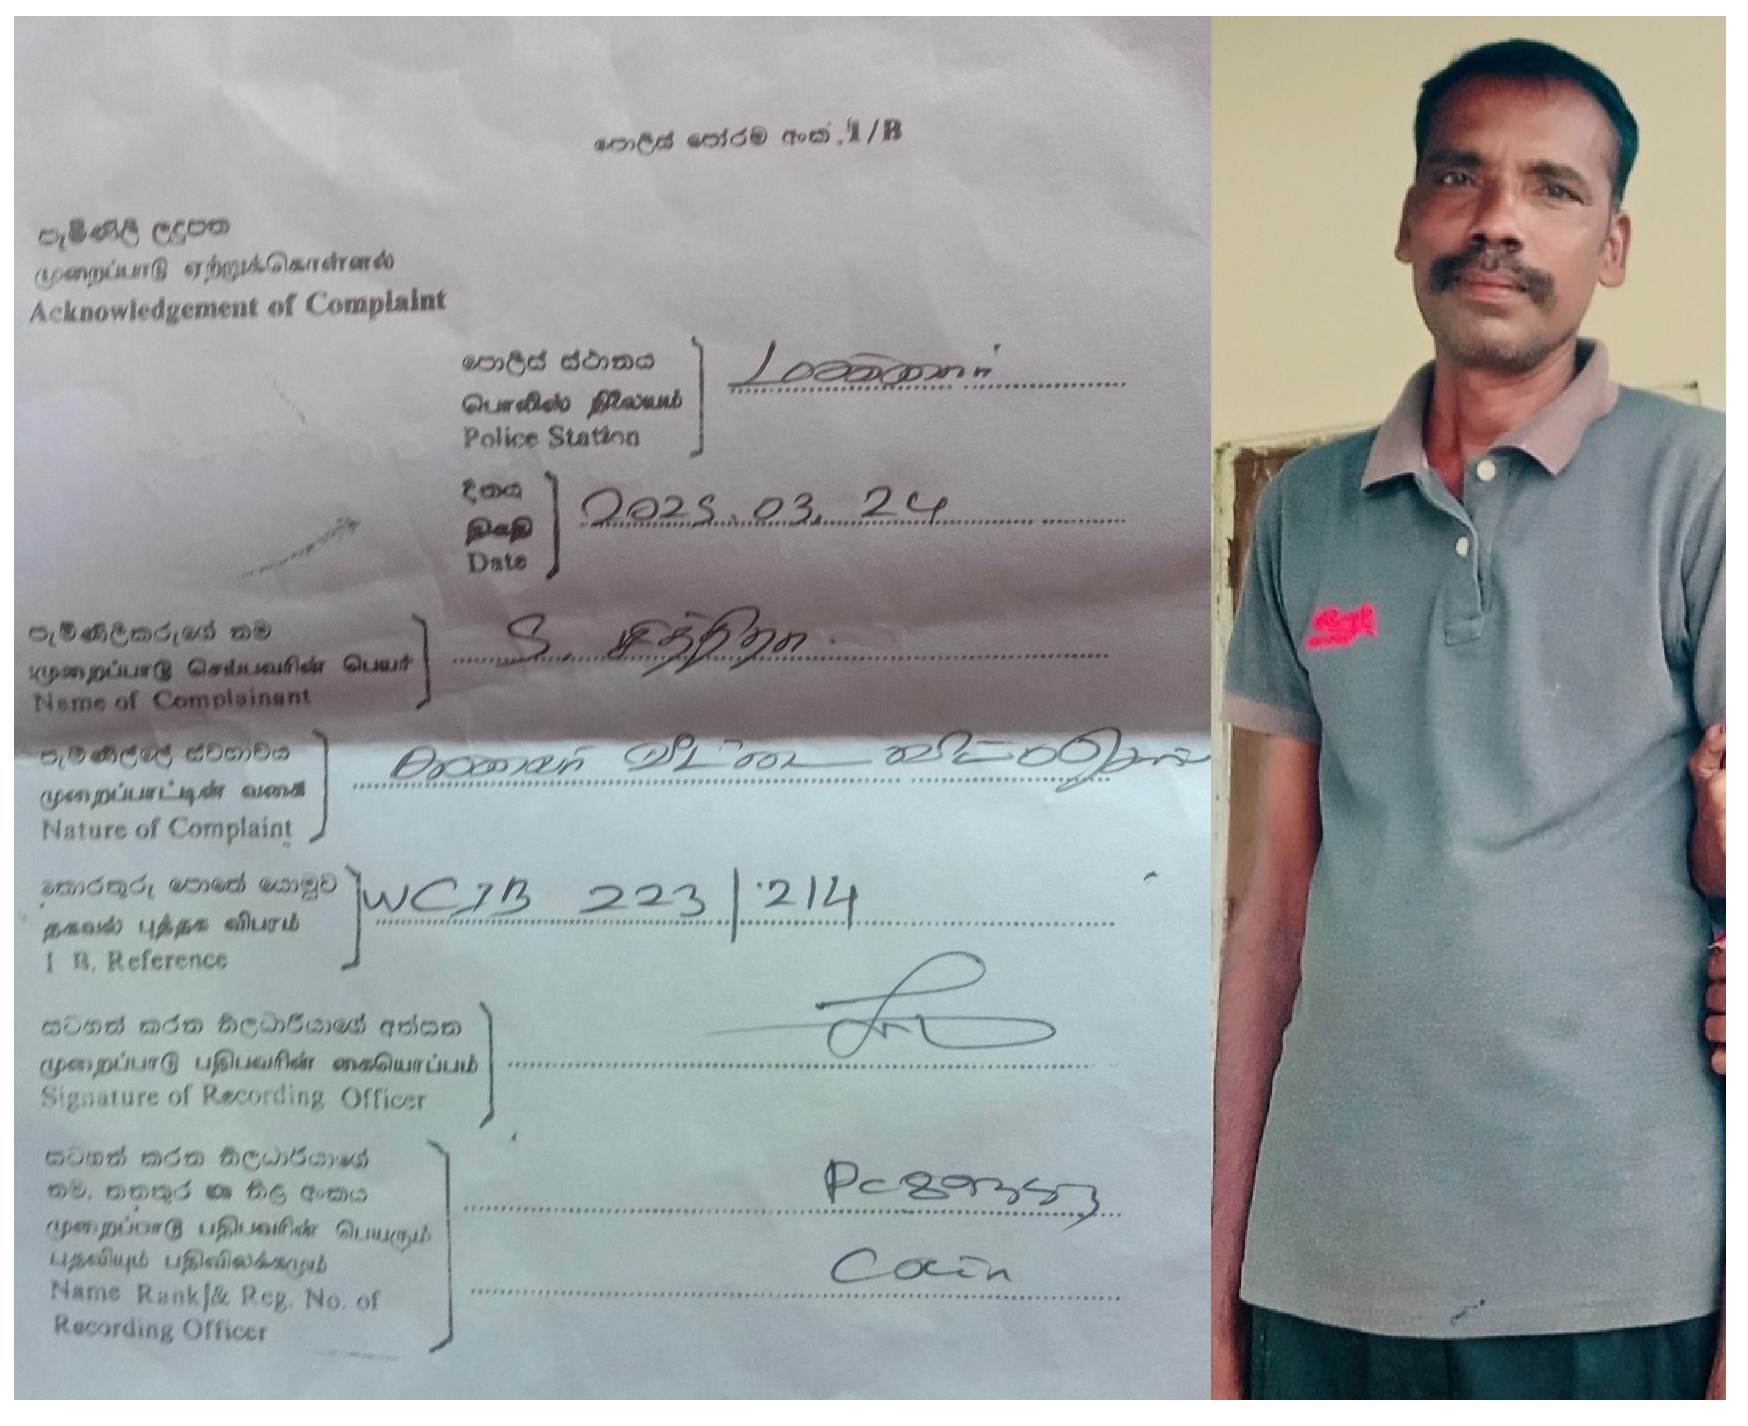 පොලිස් පෝරම අංක .1/B
පැමිණිලි ලදුපත
முறைப்பாடு ஏற்றுக்கொள்ளல்
Acknowledgement of Complaint
පොලිස් ස්ථානය
பொலிஸ் நிலையம்
Police Station
දිනය
திகதி
Date
2025.03.24
පැමිණිලිකරුගේ නම
முறைப்பாடு செய்பவரின் பெயர்
Name of Complainant
S.
පැමිණිල්ලේ ස්වභාවය
முறைப்பாட்டின் வகை
Nature of Complaint
කණවன் வீட்டை
තොරතුරු පොතේ යොමුව
தகவல் புத்தக விபரம்
I B. Reference
WCIB 223/214
සටහන් කරන නිලධාරියාගේ අත්සන
முறைப்பாடு பதிபவரின் கையொப்பம்
Signature of Recording Officer
සටහන් කරන නිලධාරියාගේ
නම, තනතුර සහ නිල අංකය
முறைப்பாடு பதிபவரின் பெயரும்
பதவியும் பதிவிலக்கமும்
Name Rank & Reg. No. of
Recording Officer